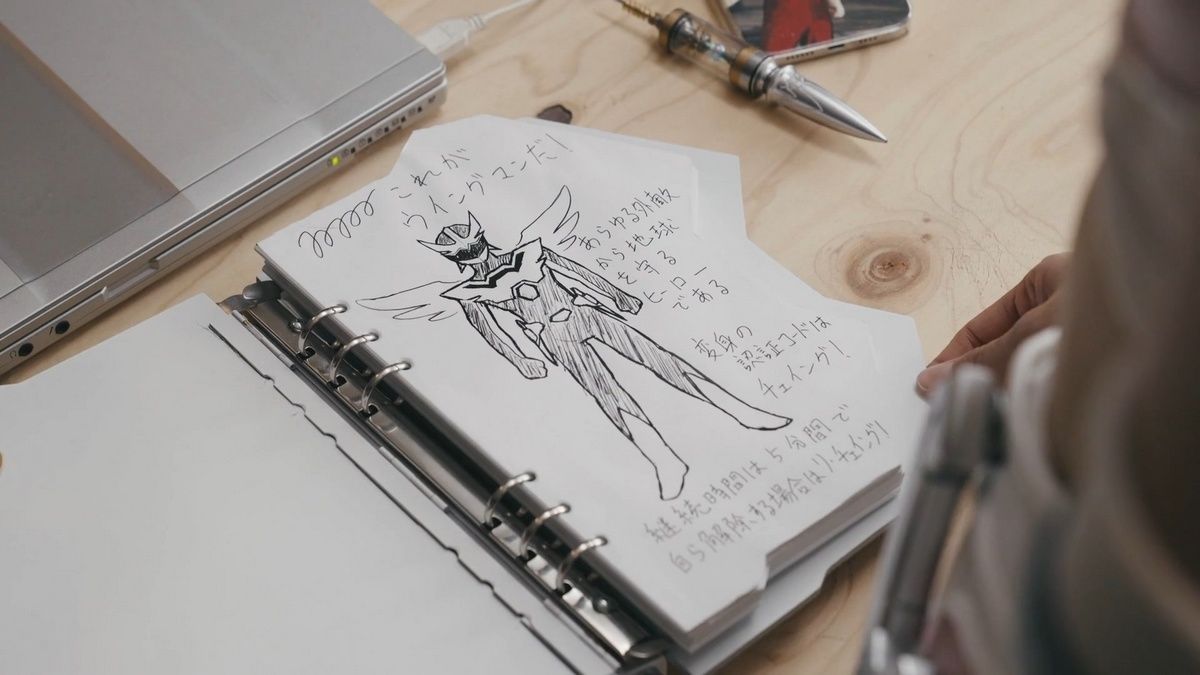 これが
ウイングマンだ!
あらゆる外敵
から地球
を守る
ヒーロー
である
変身の
認証コードは
チェイング!
継続時間は5分間で
自ら解除する場合はリ・チェイング!